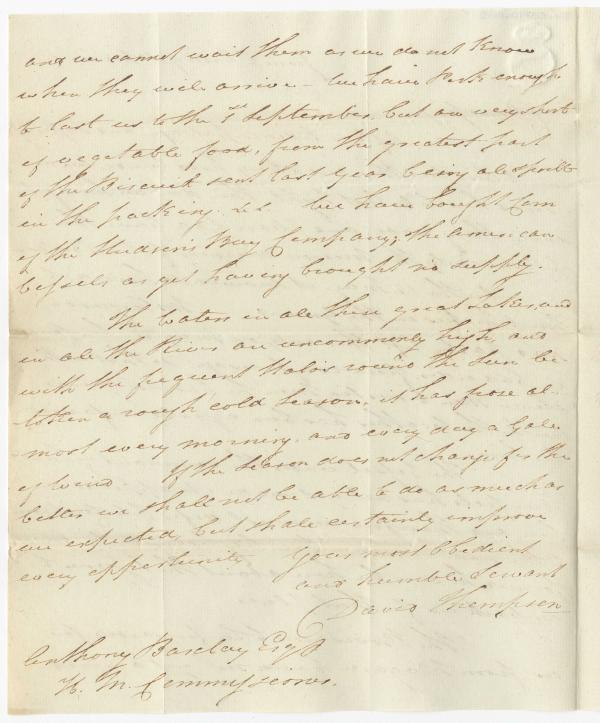 and we cannot wait them as we do not know
when they will arrive – We have Pork enough
to last us to the 1st September, but are very short
of vegetable food, from the greatest part
of the Biscuit sent last year being all spoilt
in the packing &c &c We have bought Corn
of the Hudson's Bay Company; the American
Vessels as yet having brought no supply.
The Waters in all these great Lakes, and
in all the Rivers are uncommonly high, and
with the frequent Halo's round the Sun be-
-token a rough cold Season, it has froze al-
-most every morning. and every day a Gale
of wind. If the Season does not change for the
better we shall not be able to do as much as
we expected, but shall certainly improve
every opportunity
Your most Obedient
and humble Servant
David Thompson
Anthony Barclay Esqr
H. M. Commissioner.